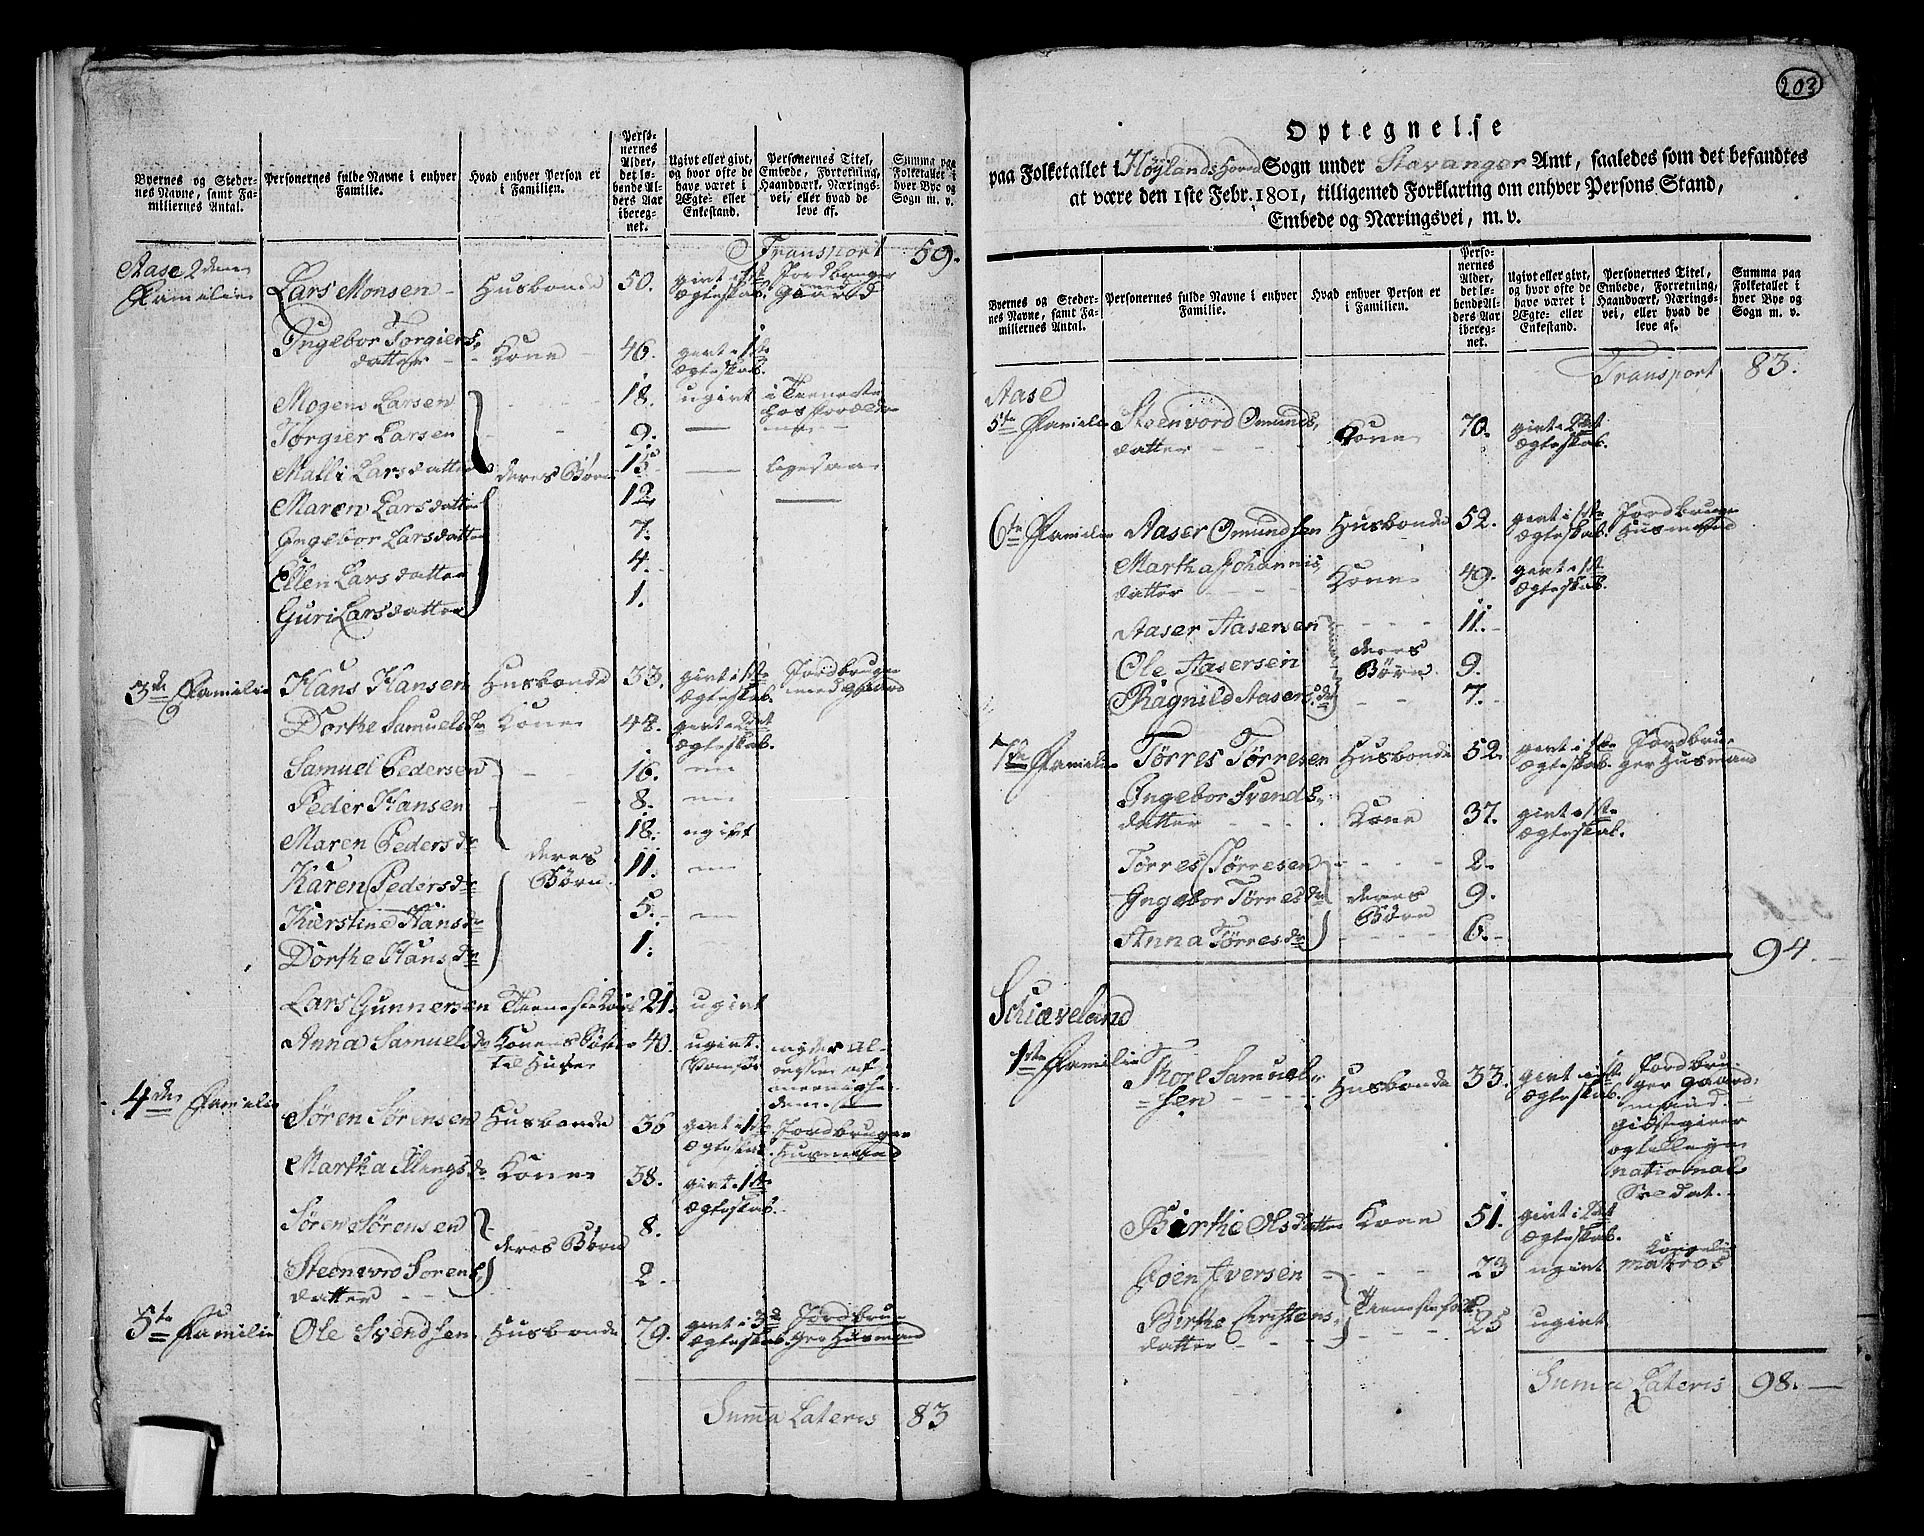 Byernes og Steder-
nes Navne, samt Fa-
miliernes Antal.
Personernes fulde Navne i enhver
Familie.
Hvad enhver Person er
i Familien.
Perso-
nernes
Alder,
det lø-
bende Al-
ders Aar
ibereg-
net.
Ugivt eller givt,
og hvor ofte de
have været i
Ægte- eller
Enkestand.
Personernes Titel,
Embede, Forretning,
Haandværk, Nærings-
vei, eller hvad de
leve af.
Summa paa
Folketallet i
hver Bye og
Sogn m. v.
Transport 59.
Aase 2den
Familie
Lars Monsen Husbonde 50. givt i 1ste
Ægteskab. Jordbruger
med
Gaard
Ingebor Torgiers
datter Kone 46. givt i 1ste
Ægteskab.
Mogens Larsen 18. ugivt i Tieneste
hos Foræld-
rne
Torgier Larsen 9.
Malli Larsdatter deres Børn 15 ligesaa
Maren Larsdatter 12.
Ingebor Larsdatter 7.
Ellen Larsdatter 4.
Guri Larsdatter 1.
3de Familie Hans Hansen Husbonde 33. givt i 1ste
Ægteskab. Jordbruger
med Gaard
Dorthe Samuelsdr Kone 44. givt i 2det
Ægteskab.
Samuel Pedersen 16.
Peder Hansen 8.
Maren Pedersdr 18. ugivt
Karen Pedersdr deres
Børn 11.
Kierstine Hansdr 5.
Dorthe Hansdr 1.
Lars Gunnersen Tieneste Karl 21. ugivt
Anna Samuelsdr Konens Søster
til Huuse 40. ugivt.
Vanfør nyder Al-
mosse af
menighe-
den
4de Familie
Søren Sørensen Husbonde 36 givt i 1ste
Ægteskab. Jordbruger
Husmand
Martha Ellingsdr Kone 38. givt i 1ste
Ægteskab.
Søren Sørensen 8.
deres Børn
Steenvro Sorens
datter 2.
5te Familie Ole Svendsen Husbonde 79. givt i 3de
Ægteskab. Jordbru-
ger Husmand
Summa Lateris 83
203
Optegnelse
paa Folketallet i Høylands Hoved Sogn under Stavanger Amt, saaledes som det befandtes
at være den 1ste Febr. 1801, tilligemed Forklaring om enhver Persons Stand,
Embede og Næringsvei, m. v.
Byernes og Steder-
nes Navne, samt Fa-
miliernes Antal.
Personernes fulde Navne i enhver
Familie.
Hvad enhver Person er
i Familien.
Perso-
nernes
Alder,
det lø-
bende Al-
ders Aar
ibereg-
net.
Ugivt eller givt,
og hvor ofte de
have været i
Ægte- eller
Enkestand.
Personernes Titel,
Embede, Forretning,
Haandværk, Nærings-
vei, eller hvad de
leve af.
Summa paa
Folketallet i
hver Bye og
Sogn m. v.
Transport 83.
Aase
5te Familie Steenvord Omunds
datter Kone 70. givt i 2det
Ægteskab.
6te Familie Aaser Omundsen Husbonde 52. givt i 1ste
Ægteskab. Jordbruger
Husmand
Martha Johannis
datter Kone 49. givt i 1ste
Ægteskab.
Aaser Aasersen 11.
Ole Aasersen deres
Børn 9.
Ragnild Aasersdr 7.
7de Familie Tørres Tørresen Husbonde 52. givt i 1ste
Ægteskab. Jordbru-
ger Husmand
Ingebor Svends
datter Kone 37. givt i 1ste
Ægteskab.
Tørres Tørresen 2.
Ingebor Tørresdr deres
Børn 9.
Anna Tørresdr 6.
94.
Schiæveland
1ste Familie Tore Samuel-
sen Husbonde 33. givt i 1ste
Ægteskab. Jordbru-
ger Gaard-
mand.
Giestgiver
og tillige
national
Soldat.
Birthe Olsdatter Kone 51. givt i 2det
Ægteskab.
Goen Iversen 23 ugivt Kongelig
Matros
Birthe Christens
datter Tienestefolk 25 ugivt
Summa Lateris 98.